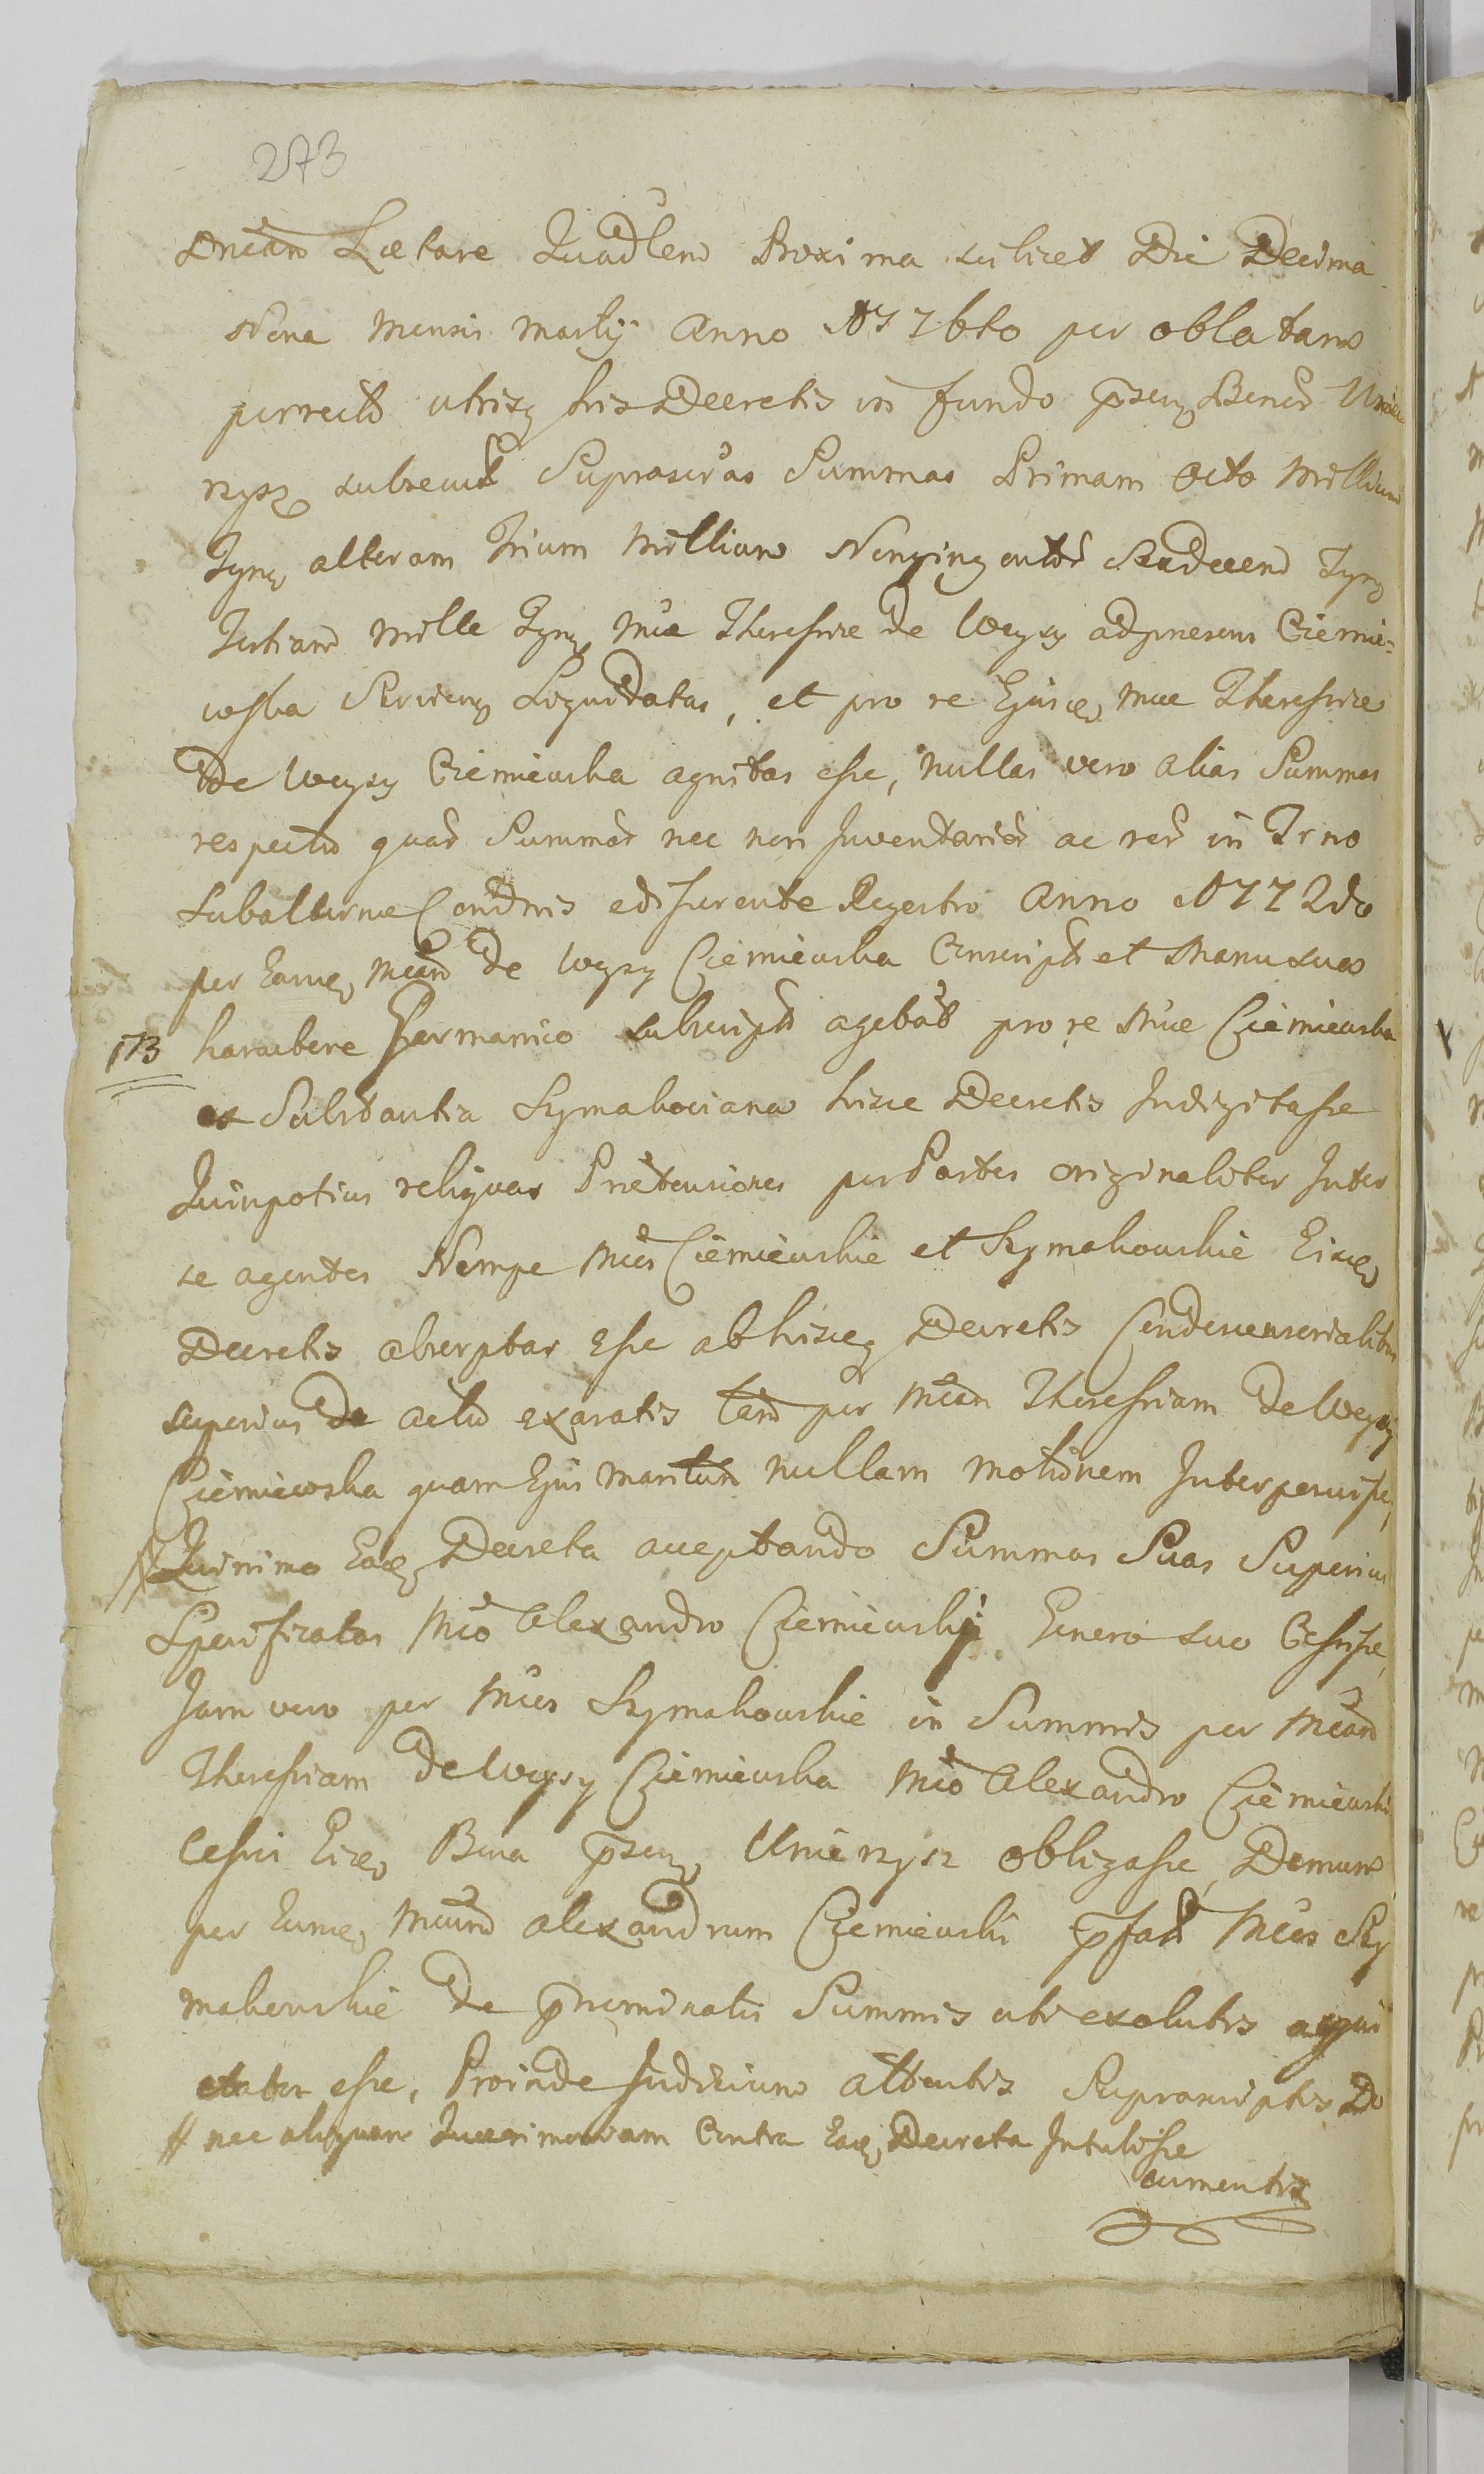 273
Dnicam Lœtare Quadlem Proxima scilicet Die Decima
Nona Mensis Martij Anno 1776to per oblatam
porrectis utrisq hisDecretis in fundo pnsenq Bonor Unie
rzysz subsecut Suprascras Summas Primam Octo Millium
Tynf alteram Trium Millium Nongingentor Sexdecem Tynf
Tertiam Mille Tynf Mcæ Theressiæ de Weysy adpræsens Ciemie-
wska Serviens Liquidatas, et pro re Ejusdem Mcæ Theressiæ
De Weysy Ciemiewska agnitas esse, nullas vero alias Summas
respectu quar Summar nec non Inventarior ac rer in Trno
Subalterno Condnis edisserente Regestro Anno 1772do
per Eamq Mcam De Weysy Ciemiewska Conscripto et Manu sua
173 haractere Germanico subscripto agebat pro re Mcæ Ciemiewska
ex Substantia Szymakoviana hisce Decretis Indigitasse
Quinpotius reliquas Prætensiones perPartes originaliter Inter
se agentes Nempe Mcos Ciemiewskie et Szymakowskie Eisdem
Decretis absorptas Esse ab hisceq Decretis Condescensorialibus
superius De actu exaratis tam per Mcam Theressiam DeWeysy
Ciemiewska quam Ejus maritum nullam motionem Interposuisse,
# Quinimo Eadem Decreta acceptando Summas Suas Superius
Specificatas Mco Alexandro Ciemiewski Genero suo Cessisse,
Jam vero per Mcos Szymakowskie in Summis per Mcam
Theressiam DeWeysy Ciemiewska Mco Alexandro Ciemiewski
Cessis Eidem Bona pnsenq Unierzysz obligasse, Demum
per Eumdem Mcum Alexandrum Ciemiewski pfatt Mcos Szy
makowskie De prnominatis Summis uti exolutis aqui
etatos esse, Proinde Judicium attentis Suprascriptis Do
# nec aliquam Quærimoniam Contra Eadem Decreta Intulisse
cumentis